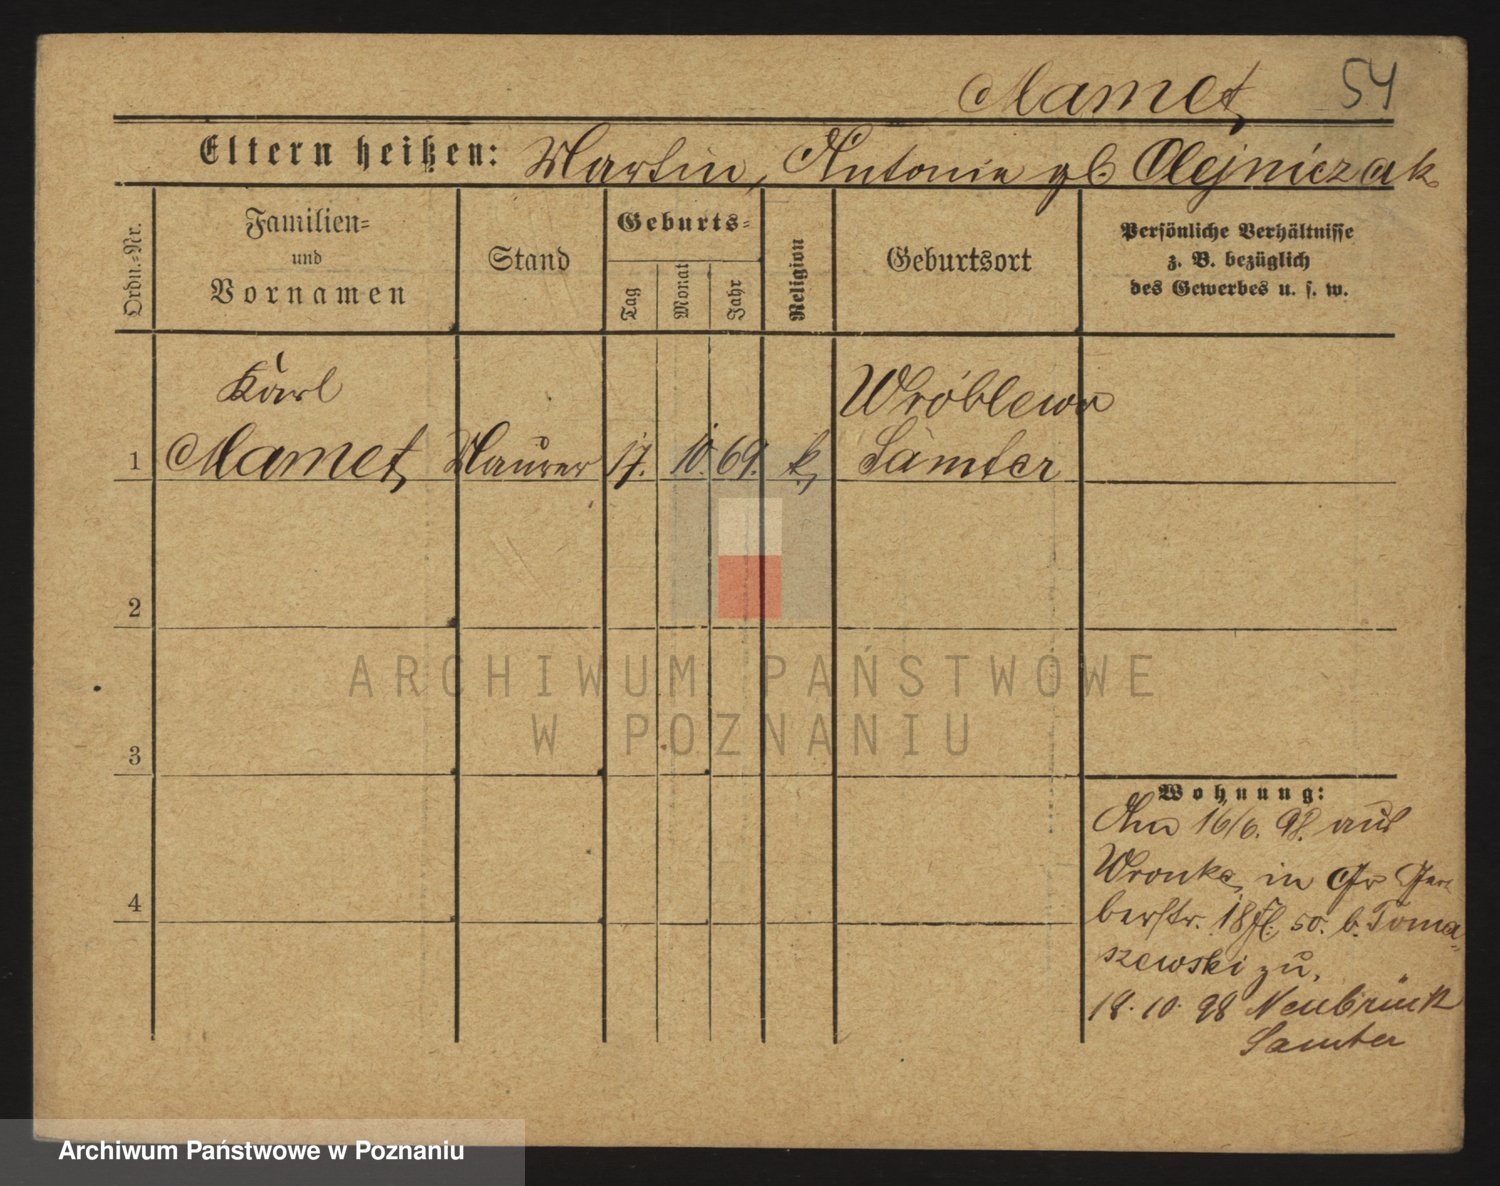 Mamet 54
Eltern heißen: Martin, Antonie gb. Olejniczak
Ordn.-Nr.
Familien-
und
Vornamen
Stand
Geburts-
Tag
Monat
Jahr
Religion
Geburtsort
Persönliche Verhältnisse
z. B. bezüglich
des Gewerbes u. s. w.
Karl Wróblewo
1 Mamet, Maurer 17. 10. 69. k, Samter
2
3
4
ARCHIWUM PAŃSTWOWE
W POZNANIU
Wohnung:
Am 16/6. 98. aus
Wronke, in Gr Ger
berstr. 18 50. b. Toma-
szewski zu.
18. 10. 98 Neubrück
Samter
Archiwum Państwowe w Poznaniu